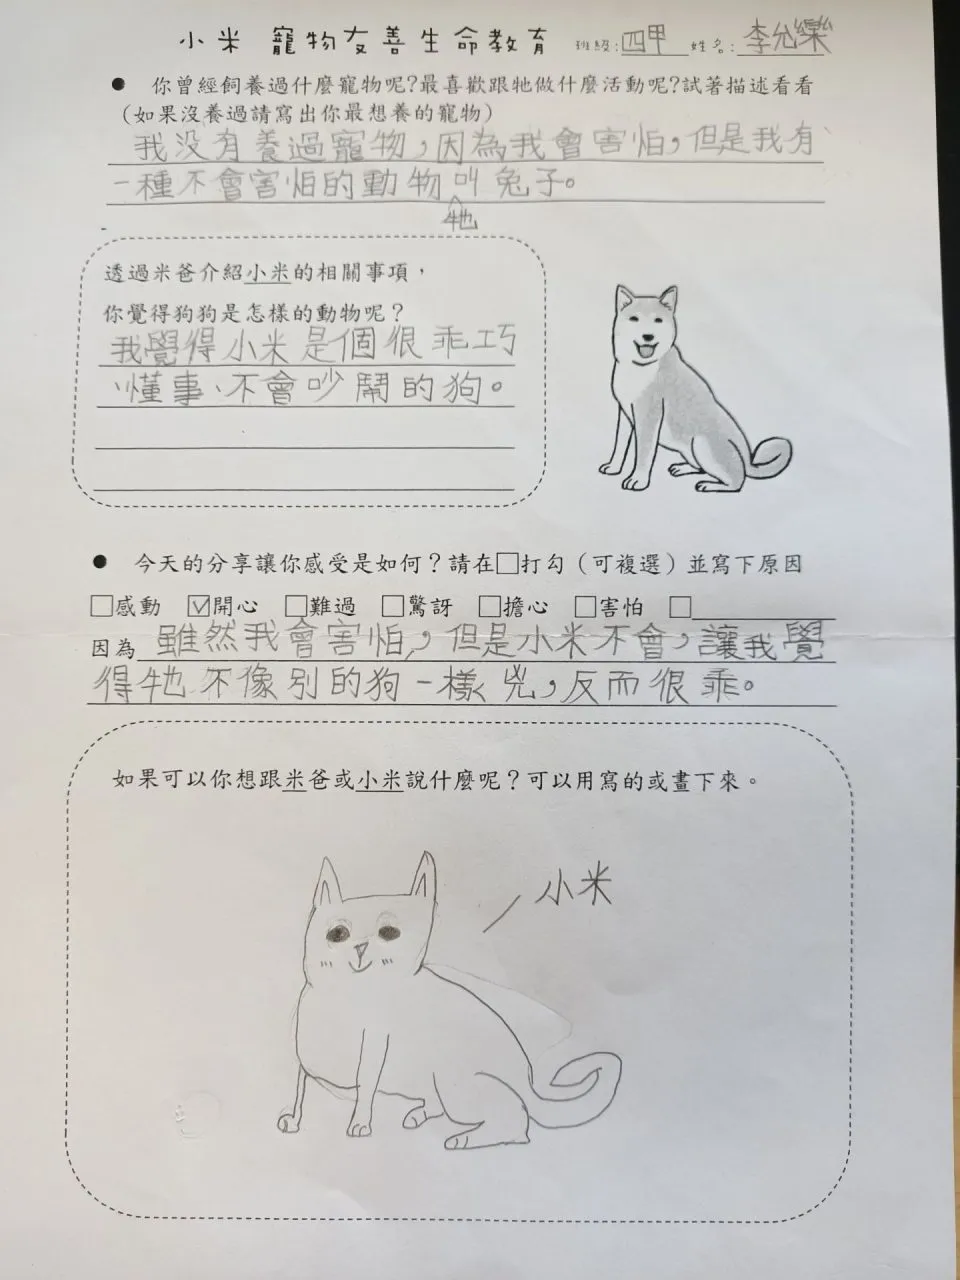 小米 寵物友善生命教育 班級:四甲 姓名:李允樂
● 你曾經飼養過什麼寵物呢?最喜歡跟牠做什麼活動呢?試著描述看看
(如果沒養過請寫出你最想養的寵物)
我没有養過寵物,因為我會害怕,但是我有
一種不會害怕的動物叫兔子。
牠
透過米爸介紹小米的相關事項,
你覺得狗狗是怎樣的動物呢?
我覺得小米是個很乖巧
、懂事、不會吵鬧的狗。
● 今天的分享讓你感受是如何?請在□打勾(可複選)並寫下原因
□感動 ☑開心 □難過 □驚訝 □擔心 □害怕 □
因為 雖然我會害怕,但是小米不會,讓我覺
得牠不像別的狗一樣兇,反而很乖。
如果可以你想跟米爸或小米說什麼呢?可以用寫的或畫下來。
小米